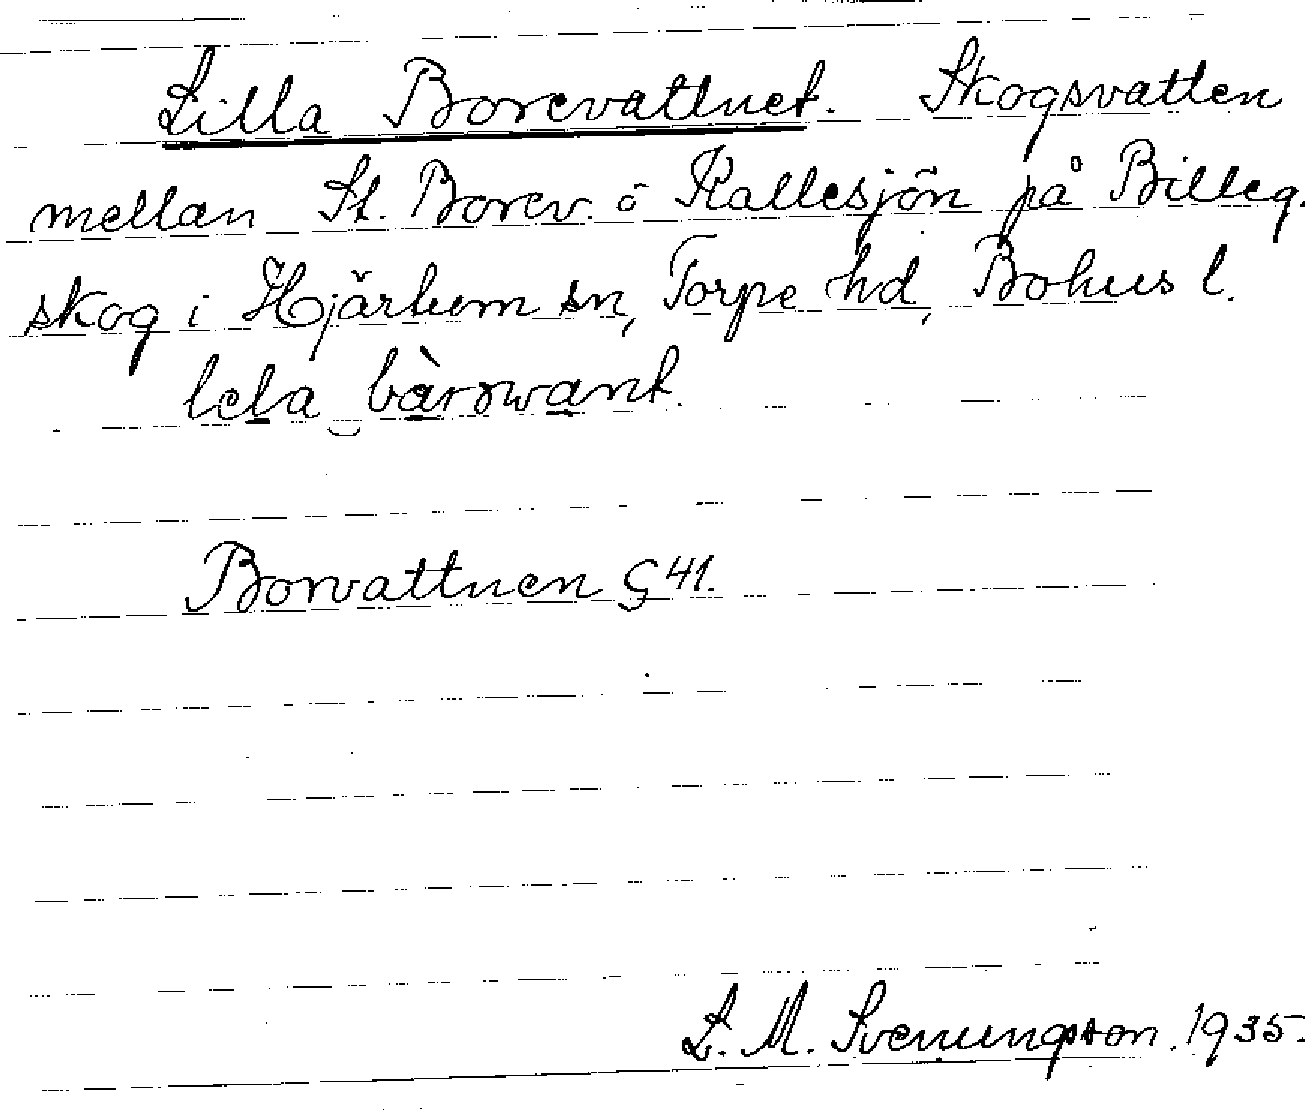 Lilla Borevattnet. Skogsvatten
mellan St. Borev. ö Kallesjön på Billeg.
skog i Hjärtum sn, Torpe hd, Bohus l.
lela bàrɷwant.
Borvattnen § 41.
L. M. Svenungsson. 1935.